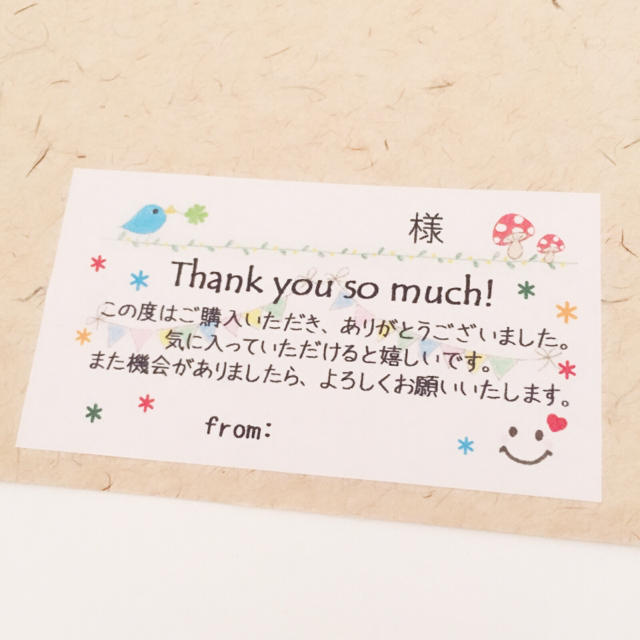 様
Thank you so much!
この度はご購入いただき、ありがとうございました。
気に入っていただけると嬉しいです。
また機会がありましたら、よろしくお願いいたします。
from: